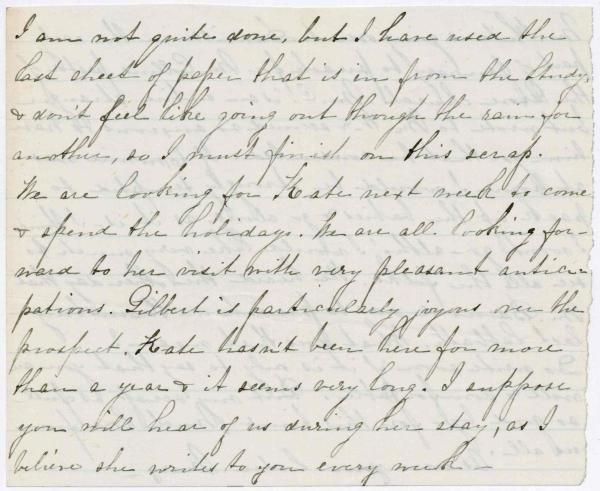 I am not quite done, but I have used the
last sheet of paper that is in from the Study,
& don't feel like going out through the rain for
another, so I must finish on this scrap.
We are looking for Kate next week to come
& spend the holidays. We are all looking for-
ward to her visit with very pleasant antici-
pations. Gilbert is particularly joyous over the
prospect. Kate hasn't been here for more
than a year & it seems very long. I suppose
you will hear of us during her stay, as I
believe she writes to you every week —